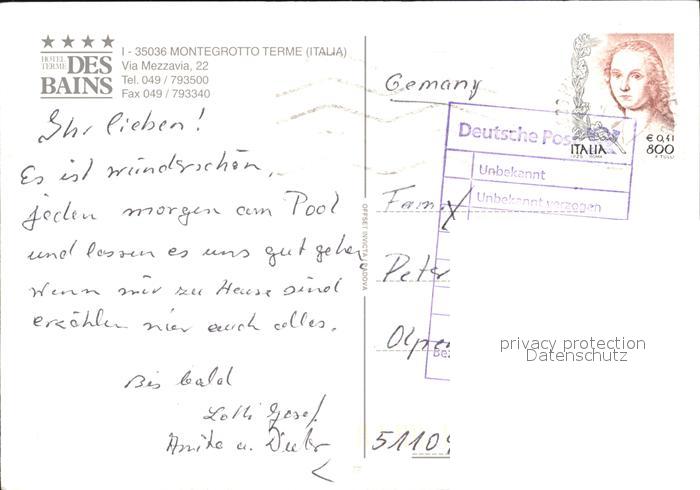 ★★★★
HOTEL TERME DES BAINS
I - 35036 MONTEGROTTO TERME (ITALIA)
Via Mezzavia, 22
Tel. 049 / 793500
Fax 049 / 793340
Ihr lieben!
Es ist wunderschön,
jeden morgen am Pool
und lassen es uns gut gehen
wenn wir zu Hause sind
erzählen wir euch alles.
Bis bald
Lotti Josef
Anita u. Dieter
OFFSET INVICTA PADOVA
Gemany
Fam.
Peter
Olpe
51109
ITALIA
€ 0,41
800
Deutsche Pos
Unbekannt
Unbekannt verzogen
privacy protection
Datenschutz